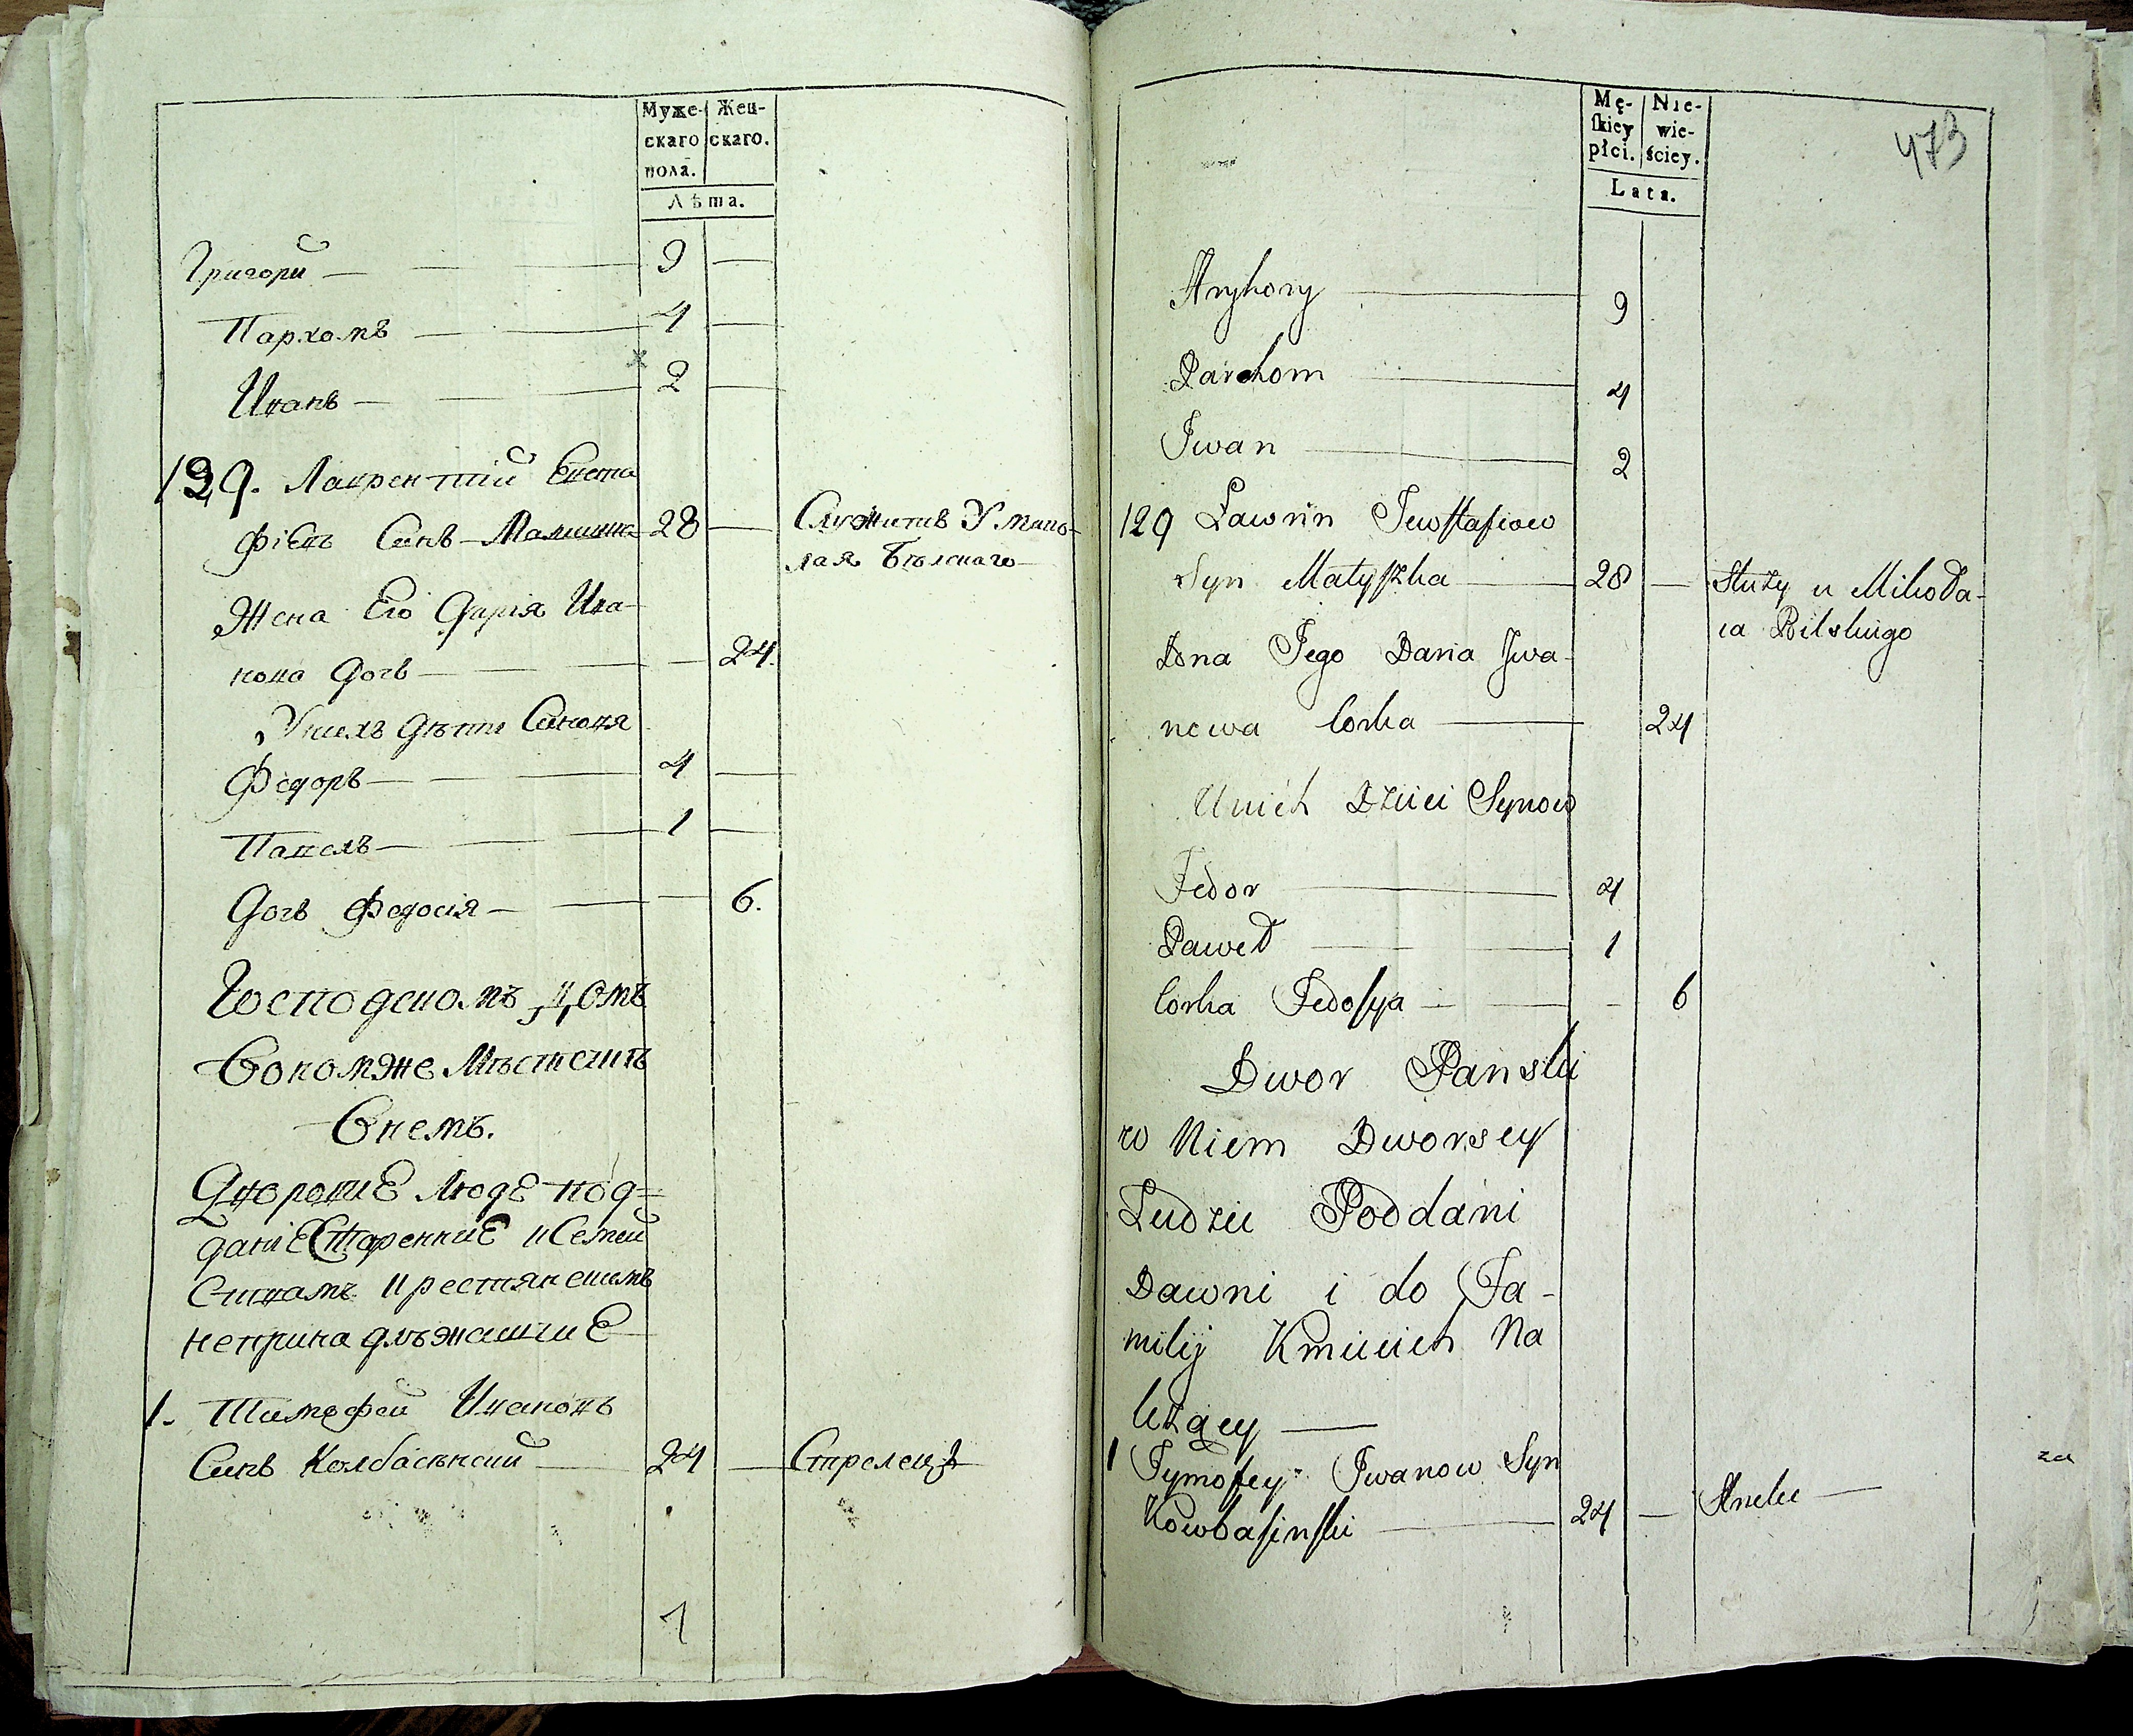 Муже-
скаго
пола.
Жен-
скаго.
Лѣта.
Григори — 9 —
Пархомъ — 4 —
x
Иванъ — 2 —
129. Лаврентій Евста
фіевъ Синъ Матишка 28 — Служитъ У Мико-
лая Бѣлскаго
Жена Его Дарія Ива-
нова Дочь — — 24.
Унихъ Дѣти Синовя
Федоръ — 4 —
Павелъ — 1 —
Дочь Федосія — — 6.
Господскомъ Домъ
Вономже Мѣстечкѣ
Внемъ.
Дворовие Люде под=
даніе Старенние и Семей
Ствамъ Крестянскимъ
непринадлѣжащие
1. Тимофей Ивановъ
Синъ Колбасѣнский — 24 — Стрелецъ
7
Mę-
skiey
płci.
Nie-
wie-
ściey.
Lata.
473
Hryhory — 9
Parchom — 4
Iwan — 2
129 Ławrin Jewstafiow
Syn Matyszka — 28 — Służy u Mikoła-
ia Bilskiego
Żona Jego Daria Iwa-
nowa Corka — 24
Unich Dzieci Synow
Fedor — 4
Paweł — 1
Corka Fedosya — — 6
Dwor Panski
w Niem Dworscy
Ludzie Poddani
Dawni i do Fa-
milij Kmiecich Na
leżący —
1 Tymofey Iwanow Syn
Kowbasinski — 24 — Strzelec —